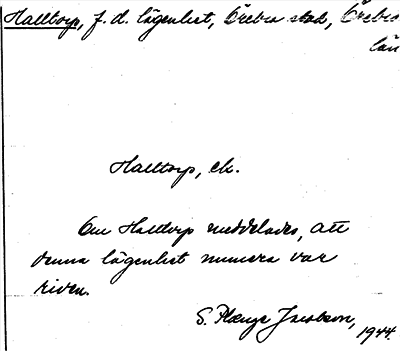 Halltorp, f. d. lägenhet, Örebro stad, Örebro
län
Halltorp, ek.
Om Halltorp meddelades, att
denna lägenhet numera var
riven.
S. Plænge Jacobson,
1944.